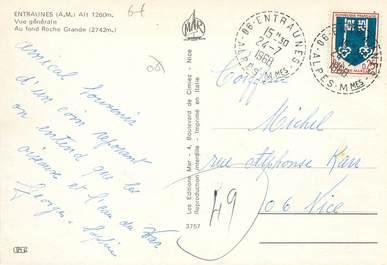 ENTRAUNES (A.M.) Alt 1260m.
Vue générale
Au fond Roche Grande (2742m.)
64
MAR
06
06-ENTRAUNES
15H30
24-7
1968
ALPES-MMES
06-
ALPES-MMES
Coiffeur
Michel
rue Alphonse Karr
06 Nice
49
amical Souvenir
d'un coin reposant
on entend que les
oiseaux et l'eau du Var
Georges
Les Editions Mar - 4, Boulevard de Cimiez - Nice
Reproduction interdite - Imprimé en Italie
3757